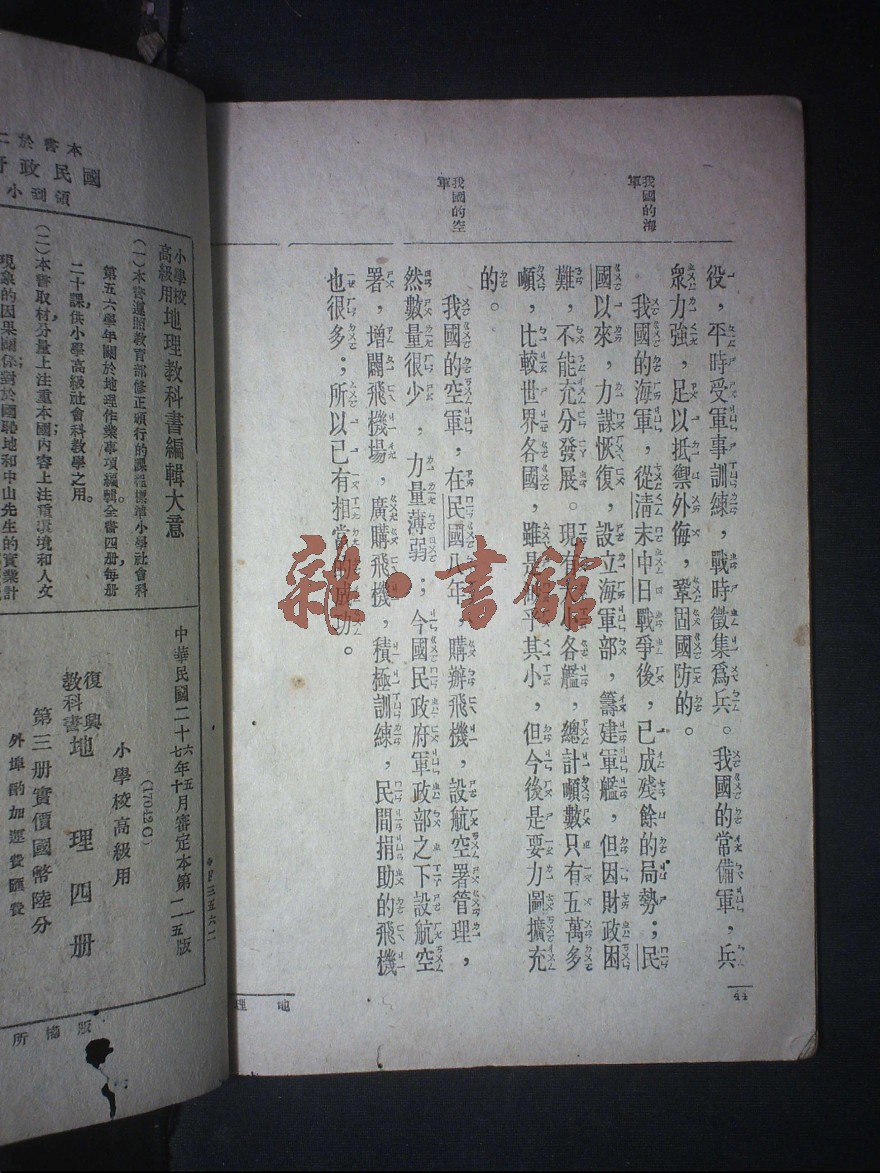 我國的海
軍
我國的空
軍
役，平時受軍事訓練，戰時徵集爲兵。我國的常備軍，兵
衆力強，足以抵禦外侮，鞏固國防的。
我國的海軍，從清末中日戰爭後，已成殘餘的局勢；民
國以來，力謀恢復，設立海軍部，籌建軍艦，但因財政困
難，不能充分發展。現有大小各艦，總計噸數只有五萬多
噸，比較世界各國，雖是微乎其小，但今後是要力圖擴充
的。
我國的空軍，在民國八年，購辦飛機，設航空署管理，
然數量很少，力量薄弱；今國民政府軍政部之下設航空
署，增闢飛機場，廣購飛機，積極訓練，民間捐助的飛機
也很多；所以已有相當的成功。
44
地理
雜·書館
本書於二
國民政府
領到小
小學校
高級用地理教科書編輯大意
(一)本書遵照教育部修正頒行的課程標準小學社會科
第五六學年關於地理作業事項編輯全書四册每册
二十課供小學高級社會科教學之用。
(二)本書取材分量上注重本國內容上注重環境和人文
現象的因果關係對於國恥地和中山先生的實業計
中華民國二十六年五月審定本第一版
七十一五
(17042G)
小學校高級用
復興
教科書地理四册
第三册實價國幣陸分
外埠酌加運費匯費
版
所